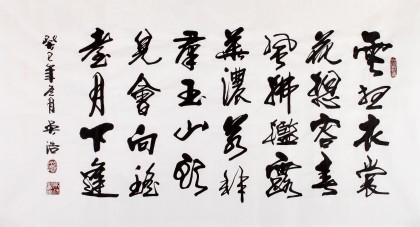 雲想衣裳
花想容春
風拂檻露
華濃若非
羣玉山頭
見會向瑤
臺月下逢
癸巳年月吴浩